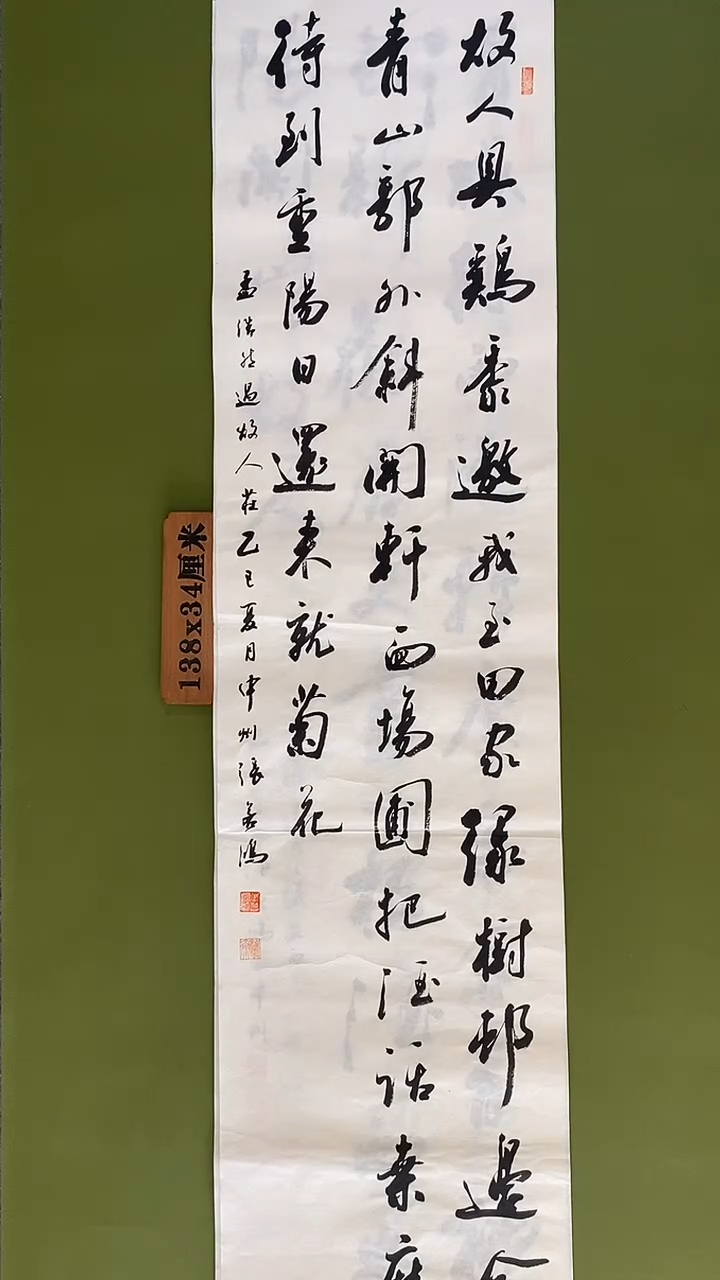 故人具鷄黍邀我至田家緑樹邨邊合
青山郭外斜開軒面場圃把酒話桑麻
待到重陽日還來就菊花
孟浩然過故人莊乙巳夏月中州張善鴻
138x34厘米